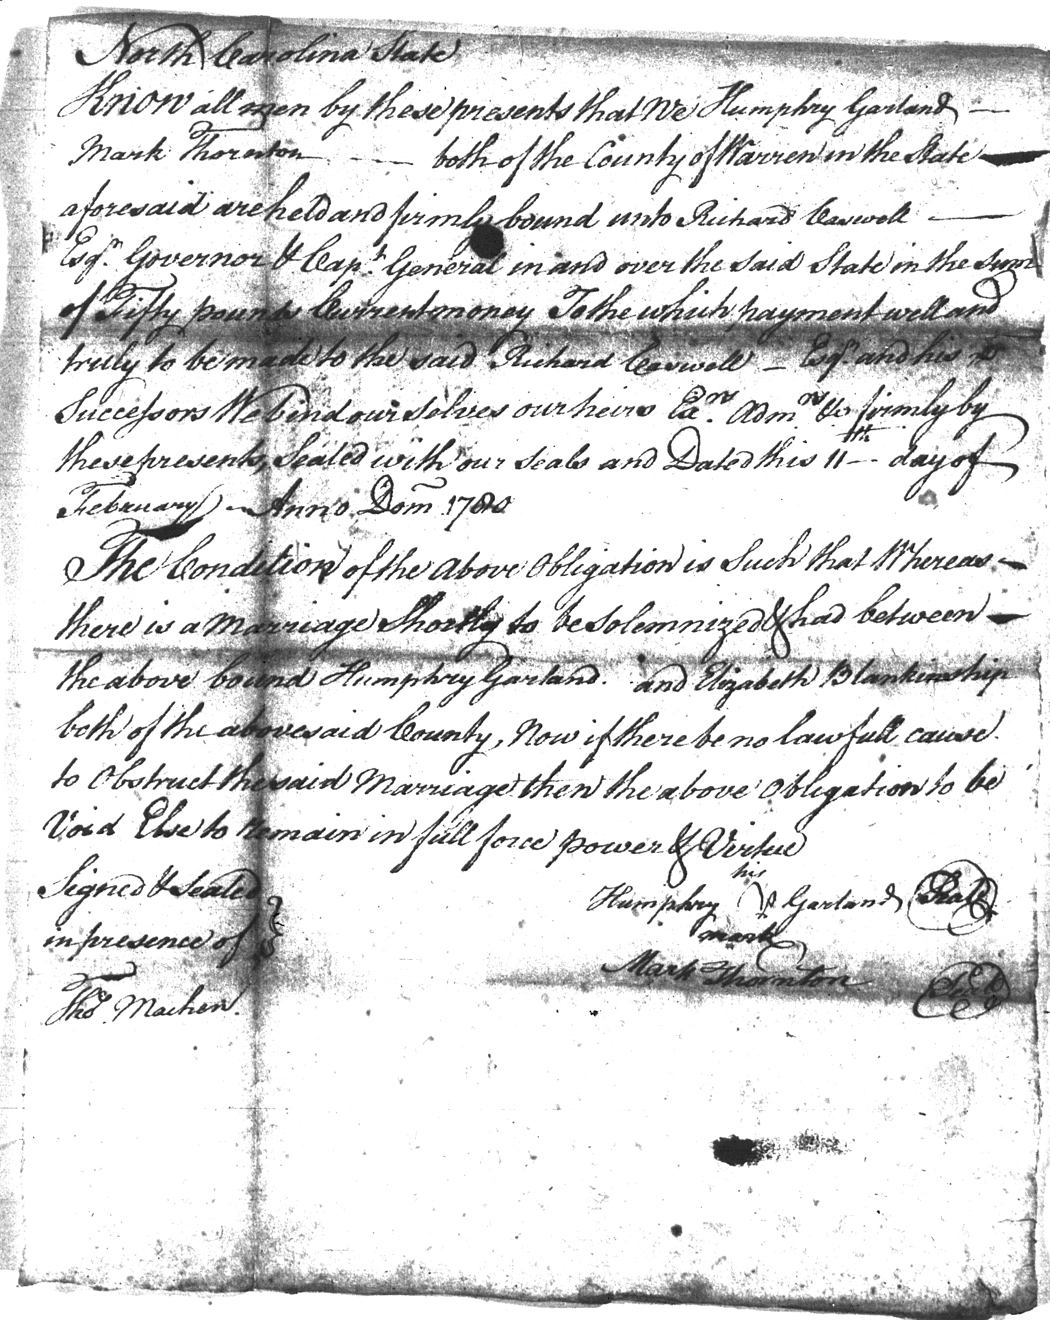 North Carolina State
Know all men by these presents that We Humphry Garland —
Mark Thornton — — both of the County of Warren in the State —
aforesaid are held and firmly bound unto Richard Caswell —
Esqr. Governor & Capt. General in and over the said State in the sum
of Fifty pounds Current money To the which payment well and
truly to be made to the said Richard Caswell — Esqr. and his
Successors We bind ourselves our heirs Exrs. Admrs &c firmly by
these presents, Sealed with our seals and Dated this 11th day of
February — Anno Dom 1780
The Condition of the above Obligation is Such that Whereas —
there is a Marriage Shortly to be solemnized & had between —
the above bound Humphry Garland. and Elizabeth Blankinship
both of the abovesaid County, Now if there be no lawfull cause.
to Obstruct the said Marriage then the above Obligation to be
Void Else to remain in full force power & Virtue
Signed & Sealed
in presence of
Thos. Machen.
his
Humphry Garland Seal
mark
Mark Thornton Seal